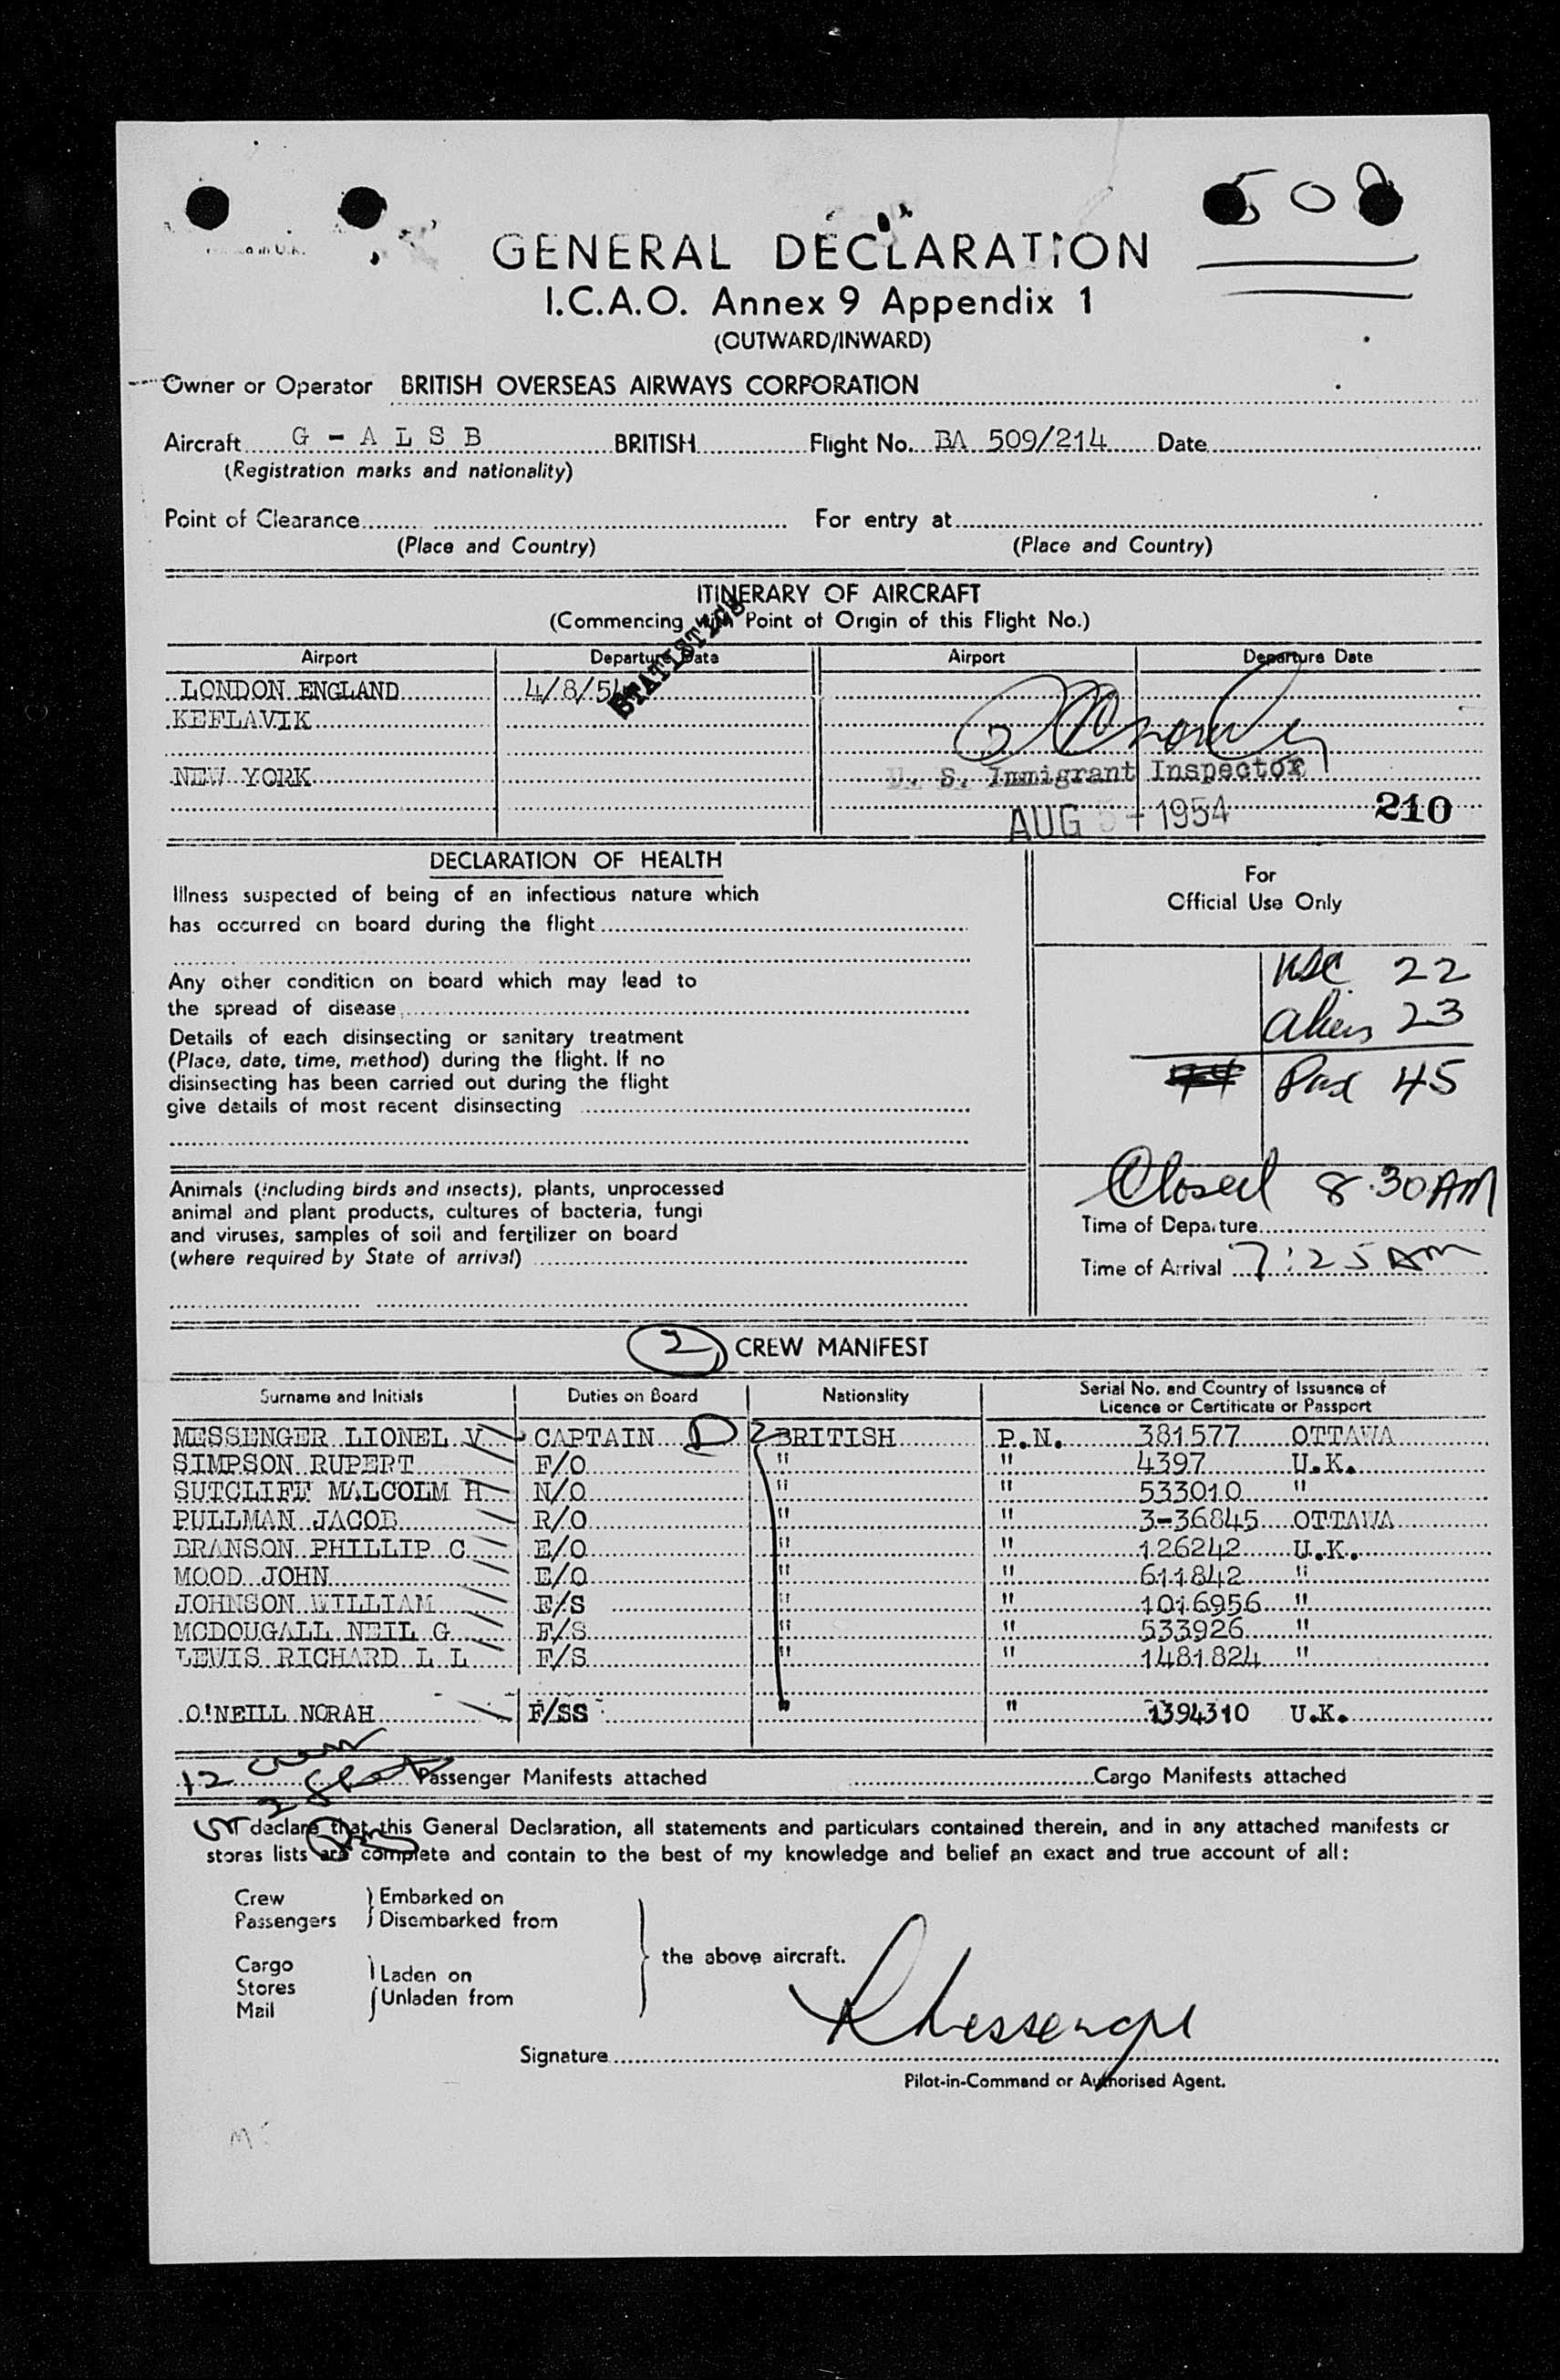 508
GENERAL DECLARATION
I.C.A.O. Annex 9 Appendix 1
(OUTWARD/INWARD)
Owner or Operator BRITISH OVERSEAS AIRWAYS CORPORATION
Aircraft G - A L S B BRITISH Flight No. BA 509/214 Date
(Registration marks and nationality)
Point of Clearance For entry at
(Place and Country) (Place and Country)
ITINERARY OF AIRCRAFT
(Commencing with Point of Origin of this Flight No.)
STATISTICS
Airport Departure Date Airport Departure Date
LONDON ENGLAND 4/8/54
KEFLAVIK
NEW YORK
U. S. Immigrant Inspector
AUG 5 - 1954 210
DECLARATION OF HEALTH
Illness suspected of being of an infectious nature which
has occurred on board during the flight
Any other condition on board which may lead to
the spread of disease
Details of each disinsecting or sanitary treatment
(Place, date, time, method) during the flight. If no
disinsecting has been carried out during the flight
give details of most recent disinsecting
Animals (including birds and insects), plants, unprocessed
animal and plant products, cultures of bacteria, fungi
and viruses, samples of soil and fertilizer on board
(where required by State of arrival)
For
Official Use Only
USC 22
Aliens 23
44 Pax 45
Closed 8.30 AM
Time of Departure
Time of Arrival 7:25 AM
2 CREW MANIFEST
Surname and Initials Duties on Board Nationality Serial No. and Country of Issuance of
Licence or Certificate or Passport
MESSENGER LIONEL V CAPTAIN D 2 BRITISH P.N. 381577 OTTAWA
SIMPSON RUPERT F/O " " 4397 U.K.
SUTCLIFF MALCOLM H N/O " " 533010 "
PULLMAN JACOB R/O " " 3-36845 OTTAWA
BRANSON PHILLIP C E/O " " 126242 U.K.
MOOD JOHN E/O " " 611842 "
JOHNSON WILLIAM F/S " " 1016956 "
MCDOUGALL NEIL G F/S " " 533926 "
LEWIS RICHARD L L F/S " " 1481824 "
O'NEILL NORAH F/SS " " 1394310 U.K.
12 crew
2 Passenger Manifests attached Cargo Manifests attached
I declare that this General Declaration, all statements and particulars contained therein, and in any attached manifests or
stores lists are complete and contain to the best of my knowledge and belief an exact and true account of all:
Crew Embarked on
Passengers Disembarked from
the above aircraft.
Cargo Laden on
Stores Unladen from
Mail
L Messenger
Signature
Pilot-in-Command or Authorised Agent.